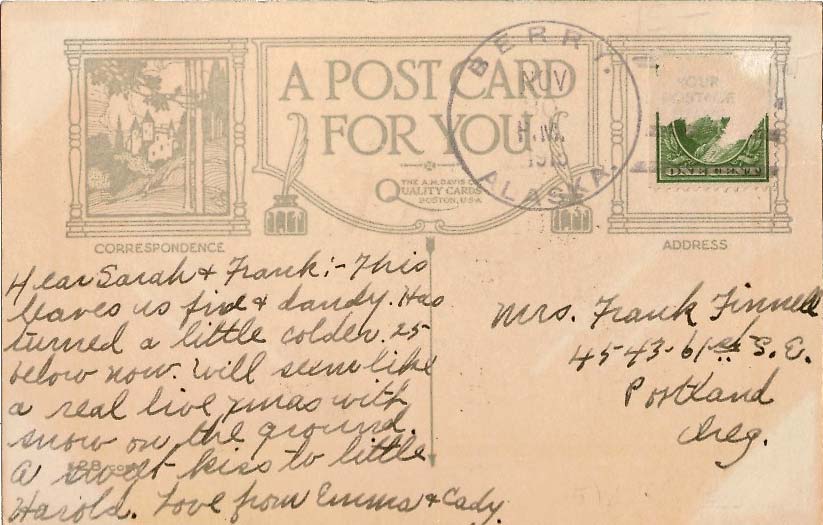 A POST CARD
FOR YOU
THE A.M. DAVIS CO.
QUALITY CARDS
BOSTON, USA
CORRESPONDENCE
BERRY.
NOV
P.M.
ALASKA.
YOUR
POSTAGE
ONE CENT
ADDRESS
Dear Sarah & Frank:- This
leaves us fine & dandy. Has
turned a little colder. 25
below now. Will seem like
a real live xmas with
snow on the ground.
A sweet kiss to little
Harold. Love from Emma & Cady
Mrs. Frank Finnell
4543-61st S.E.
Portland
Oreg.